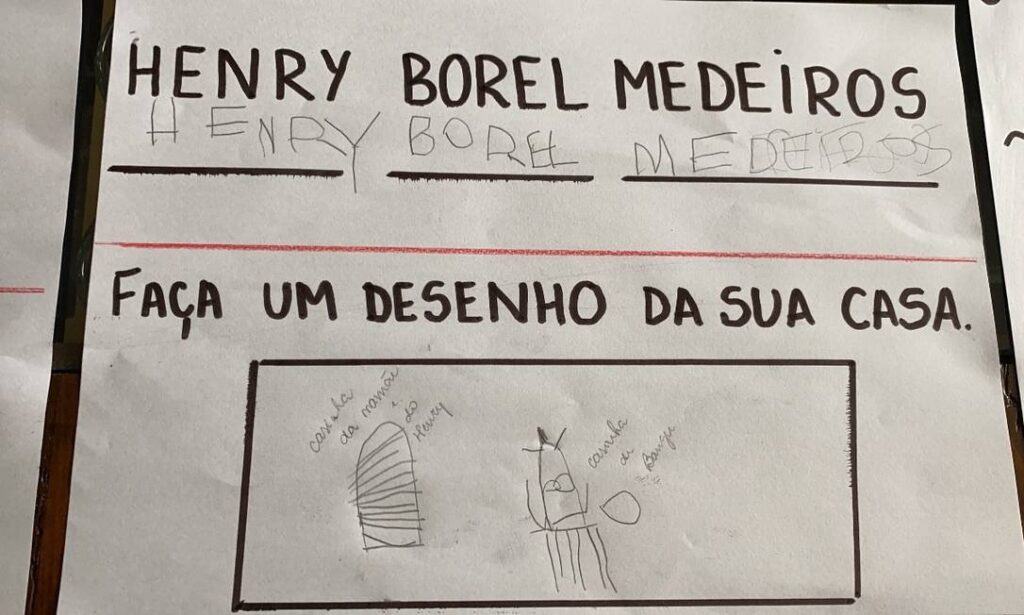 HENRY BOREL MEDEIROS
HENRY BOREL MEDEIROS
FAÇA UM DESENHO DA SUA CASA.
casinha
da mamãe
e
do
Henry
casinha
de
Bangu